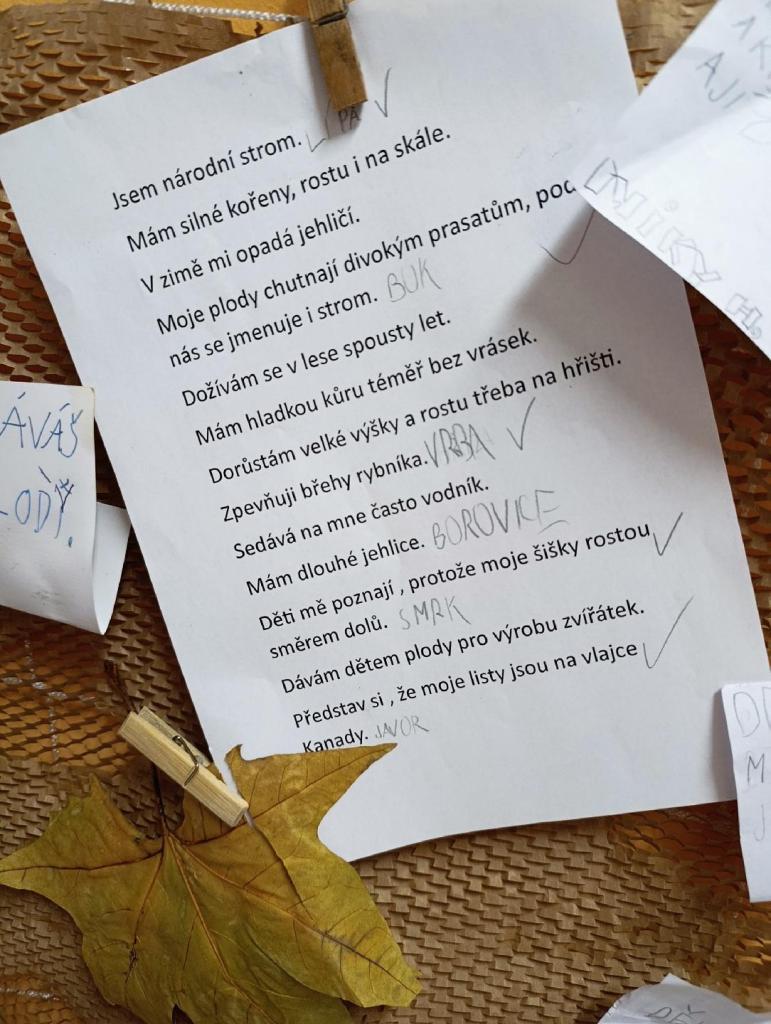 Jsem národní strom. LÍPA ✓
Mám silné kořeny, rostu i na skále.
V zimě mi opadá jehličí.
Moje plody chutnají divokým prasatům,
nás se jmenuje i strom. BUK
Dožívám se v lese spousty let.
Mám hladkou kůru téměř bez vrásek.
Dorůstám velké výšky a rostu třeba na hřišti.
Zpevňuji břehy rybníka. VRBA ✓
Sedává na mne často vodník.
Mám dlouhé jehlice. BOROVICE
Děti mě poznají , protože moje šišky rostou
směrem dolů. SMRK
Dávám dětem plody pro výrobu zvířátek.
Představ si , že moje listy jsou na vlajce
Kanady. JAVOR
NIKY H.